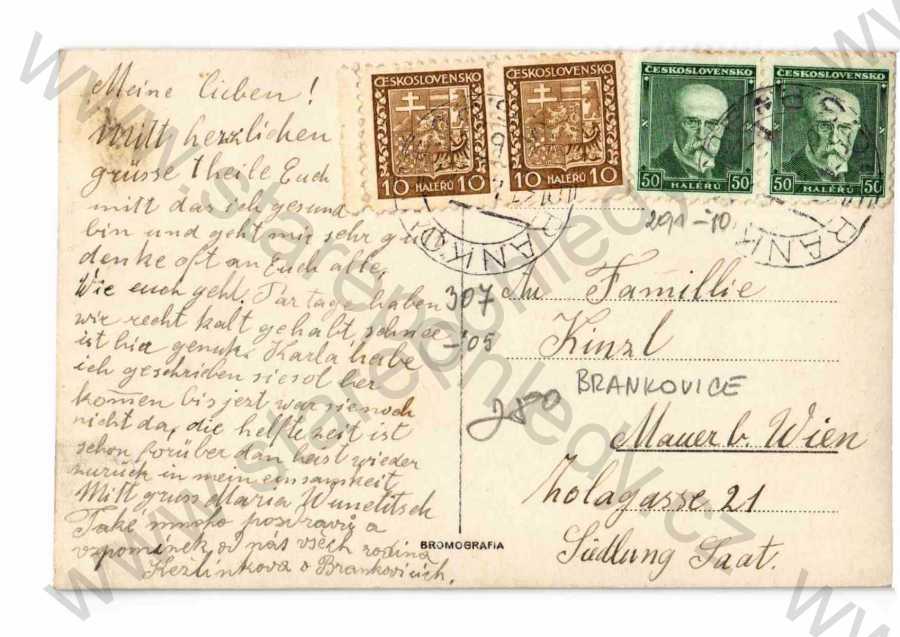 Meine lieben!
mitt herzlichen
grüsse Theile Euch
mitt das ich gesund
bin und geht mir sehr gu
denke oft an Euch alle,
Wie euch geht. Par tage haben
wir recht kalt gehabt, schnee
ist hia genuk. Karla habe
ich geschriben sie sol her
kom̄en bis jezt war sie noch
nicht da, die helfte zeit ist
schon förüber dan heist wieder
zurück in mein einsamkeit
Mitt gruss Maria
Také mnoho pozdravů a
vzpomínek od nás všech rodina
o Brankovicích.
BROMOGRAFIA
ČESKOSLOVENSKO
10 HALÉŘŮ 10
ČESKOSLOVENSKO
10 HALÉŘŮ 10
ČESKOSLOVENSKO
50 HALÉŘŮ 50
ČESKOSLOVENSKO
50 HALÉŘŮ 50
BRANKO
RANK
307
-'05
An Famillie
Kinzl
BRANKOVICE
Mauer b. Wien
Zolagasse 21
Siedlung Saat.
www.starepohledy.cz